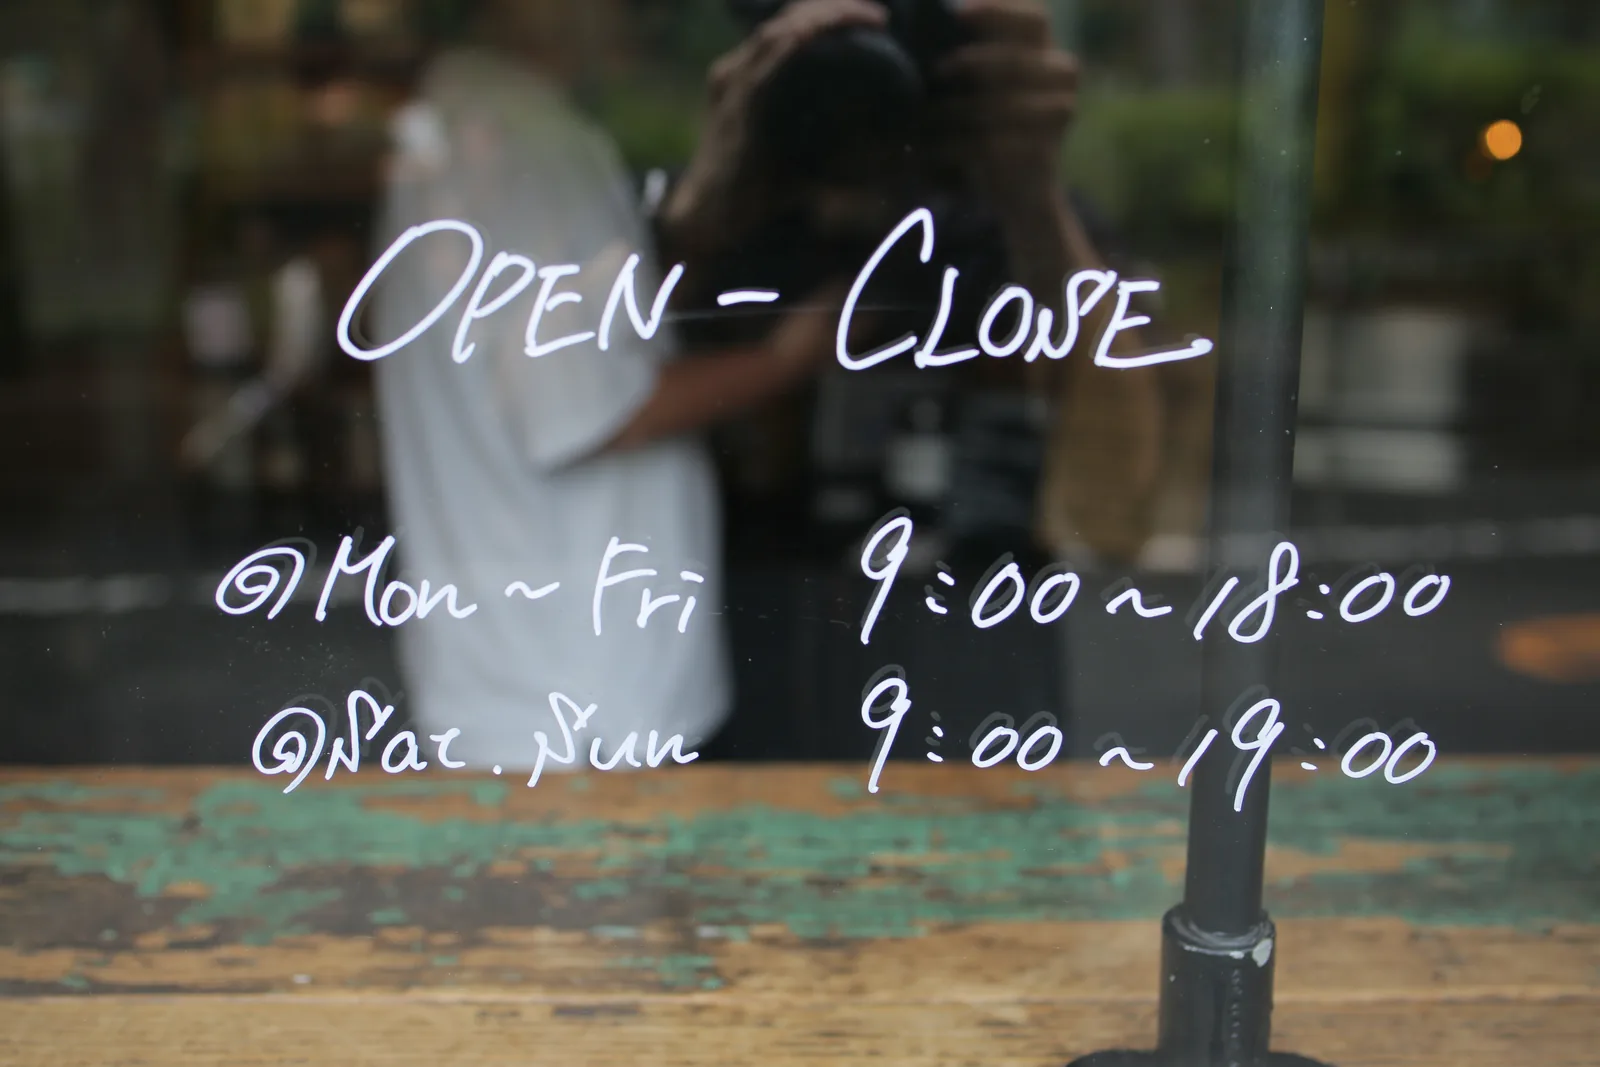 OPEN - CLOSE
@Mon ~ Fri 9:00 ~ 18:00
@Sat. Sun 9:00 ~ 19:00